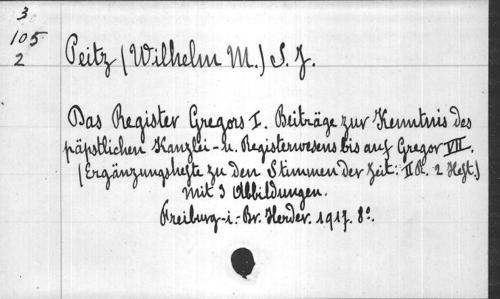 3
105
2
Peitz (Wilhelm M.) S. J.
Das Register Gregors I. Beiträge zur Kenntnis des
päpstlichen Kanzlei- u. Registerwesens bis auf Gregor VII.
(Ergänzungshefte zu den Stimmen der Zeit: II R. 2 Heft.)
Mit 3 Abbildungen.
Freiburg-i.-Br. Herder. 1917. 8°.